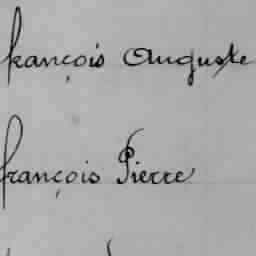 françois Auguste
françois Pierre